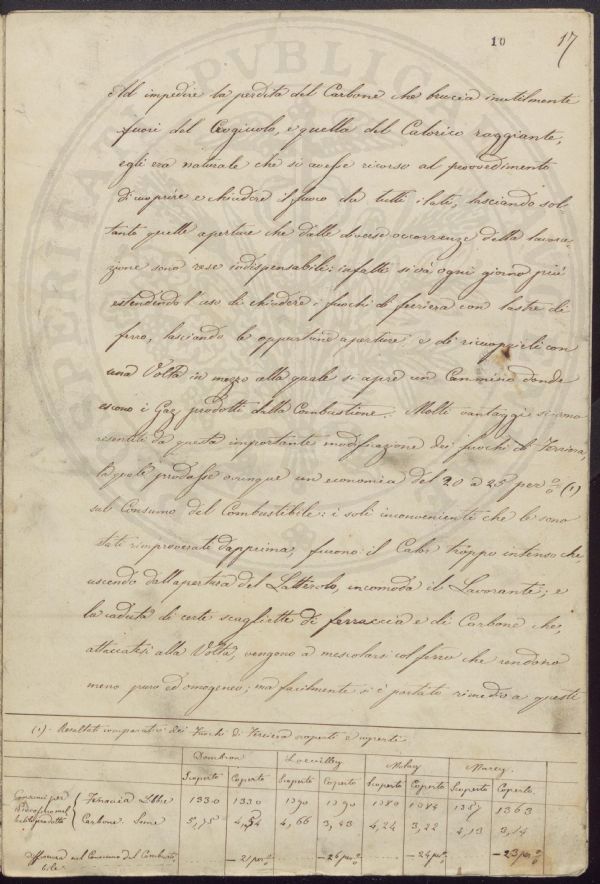 10 17
Ad impedire la perdita del Carbone che brucia inutilmente
fuori del Crogiuolo, e quella del Calorico raggiante,
egli era naturale che si avesse ricorso al provvedimento
di cuoprire e chiudere il fuoco da tutti i lati, lasciando sol-
tanto quelle aperture che dalle diverse occorrenze della lavora-
zione sono rese indispensabili: infatti si và ogni giorno più
estendendo l'uso di chiudere i fuochi di ferriera con lastre di
ferro, lasciando le opportune aperture e di ricuoprirli con
una Volta in mezzo alla quale si apre un Cammino donde
escono i Gaz prodotti dalla Combustione. Molti vantaggi si sono
risentiti da questa importante modificazione dei fuochi di Ferriera,
la quale produsse ovunque un economia del 20 a 25 per % (1)
sul Consumo del Combustibile: i soli inconvenienti che le sono
stati rimproverati dapprima, furono il Calor troppo intenso che,
uscendo dall'apertura del Latterolo, incomoda il Lavorante; e
la caduta di certe scagliette di ferraccia e di Carbone che,
attaccatesi alla Volta, vengono a mescolarsi col ferro che rendono
meno puro ed omogeneo; ma facilmente si è portato rimedio a questi
(1) Resultati comparativi dei Fuochi di Ferriera scoperti e coperti
Scoperto Coperto Scoperto Coperto Scoperto Coperto Scoperto Coperto
Consumi per
Ferraccia Libbre 1330 1330 1390 1390 1380 1384 1357 1363
Carbone Some 5,75 4,54 4,66 3,43 4,24 3,22 4,13 3,14
Differenza nel Consumo del Combusti-
bile — 21 per % — 26 per % — 24 per % — 23 per %